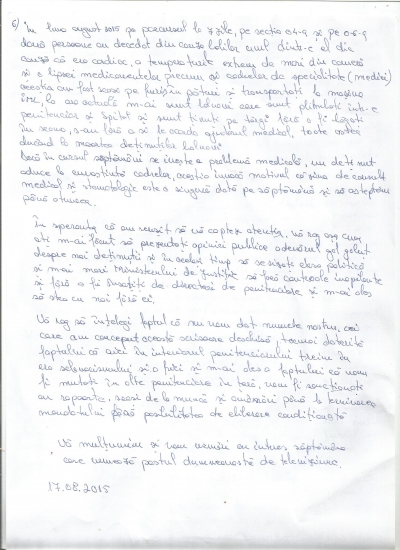 6) În luna august 2015 pe parcursul la 7 zile, pe secția 04-9 și pe 06-9
două persoane au decedat din cauza bolilor unul dintr-e ei din
cauză că era cardiac, a temperaturilor extrem de mari din cameră
și a lipsei medicamentelor precum și cadrelor de specialitate (medici)
aceștia au fost scose pe furiș în pături și transportați la mașina
IML, la ora actuală m-ai sunt bolnavi care sunt plimbați într-e
penitenciar și spital și sunt ținuți pe târgi fără a fi legați
în seama, s-au fără a si le acorda ajutorul medical, toate astea
ducând la moartea deținuților bolnavi
Dacă în cursul săptămânii se ivește o problemă medicală, un deținut
aduce la cunoștință cadrelor, aceștia invocă motivul că ziua de consult
medical și stomatologic este o singură dată pe săptămână și să așteptăm
până atunci.
În speranța că am reușit să vă captez atenția, vă rog așa cum
ați m-ai făcut să prezentați opiniei publice adevărul gol goluț
despre noi deținuții și în același timp să se sizeze clasa politică
și m-ai mari Ministerului de Justiție să facă controale inopinate
și fără a fi însoțiți de directorii de penitenciare și m-ai ales
să stea cu noi fără ei.
Vă rog să înțelegi faptul că nu vom da numele nostru, cei
care am conceput această scrisoare deschisă, tocmai datorită
faptului că aici în interiorul penitenciarului trăim în
era sclavagismului și a fricii și m-ai ales a faptului că vom
fi mutați în alte penitenciare în țară, vom fi sancționați
cu rapoarte, scoși de la muncă și amânări până la terminarea
mandatului fără posibilitatea de eliberare condiționată
Vă mulțumim și vom urmări cu interes săptămâna
care urmează postul dumneavoastră de televiziune.
17.08.2015